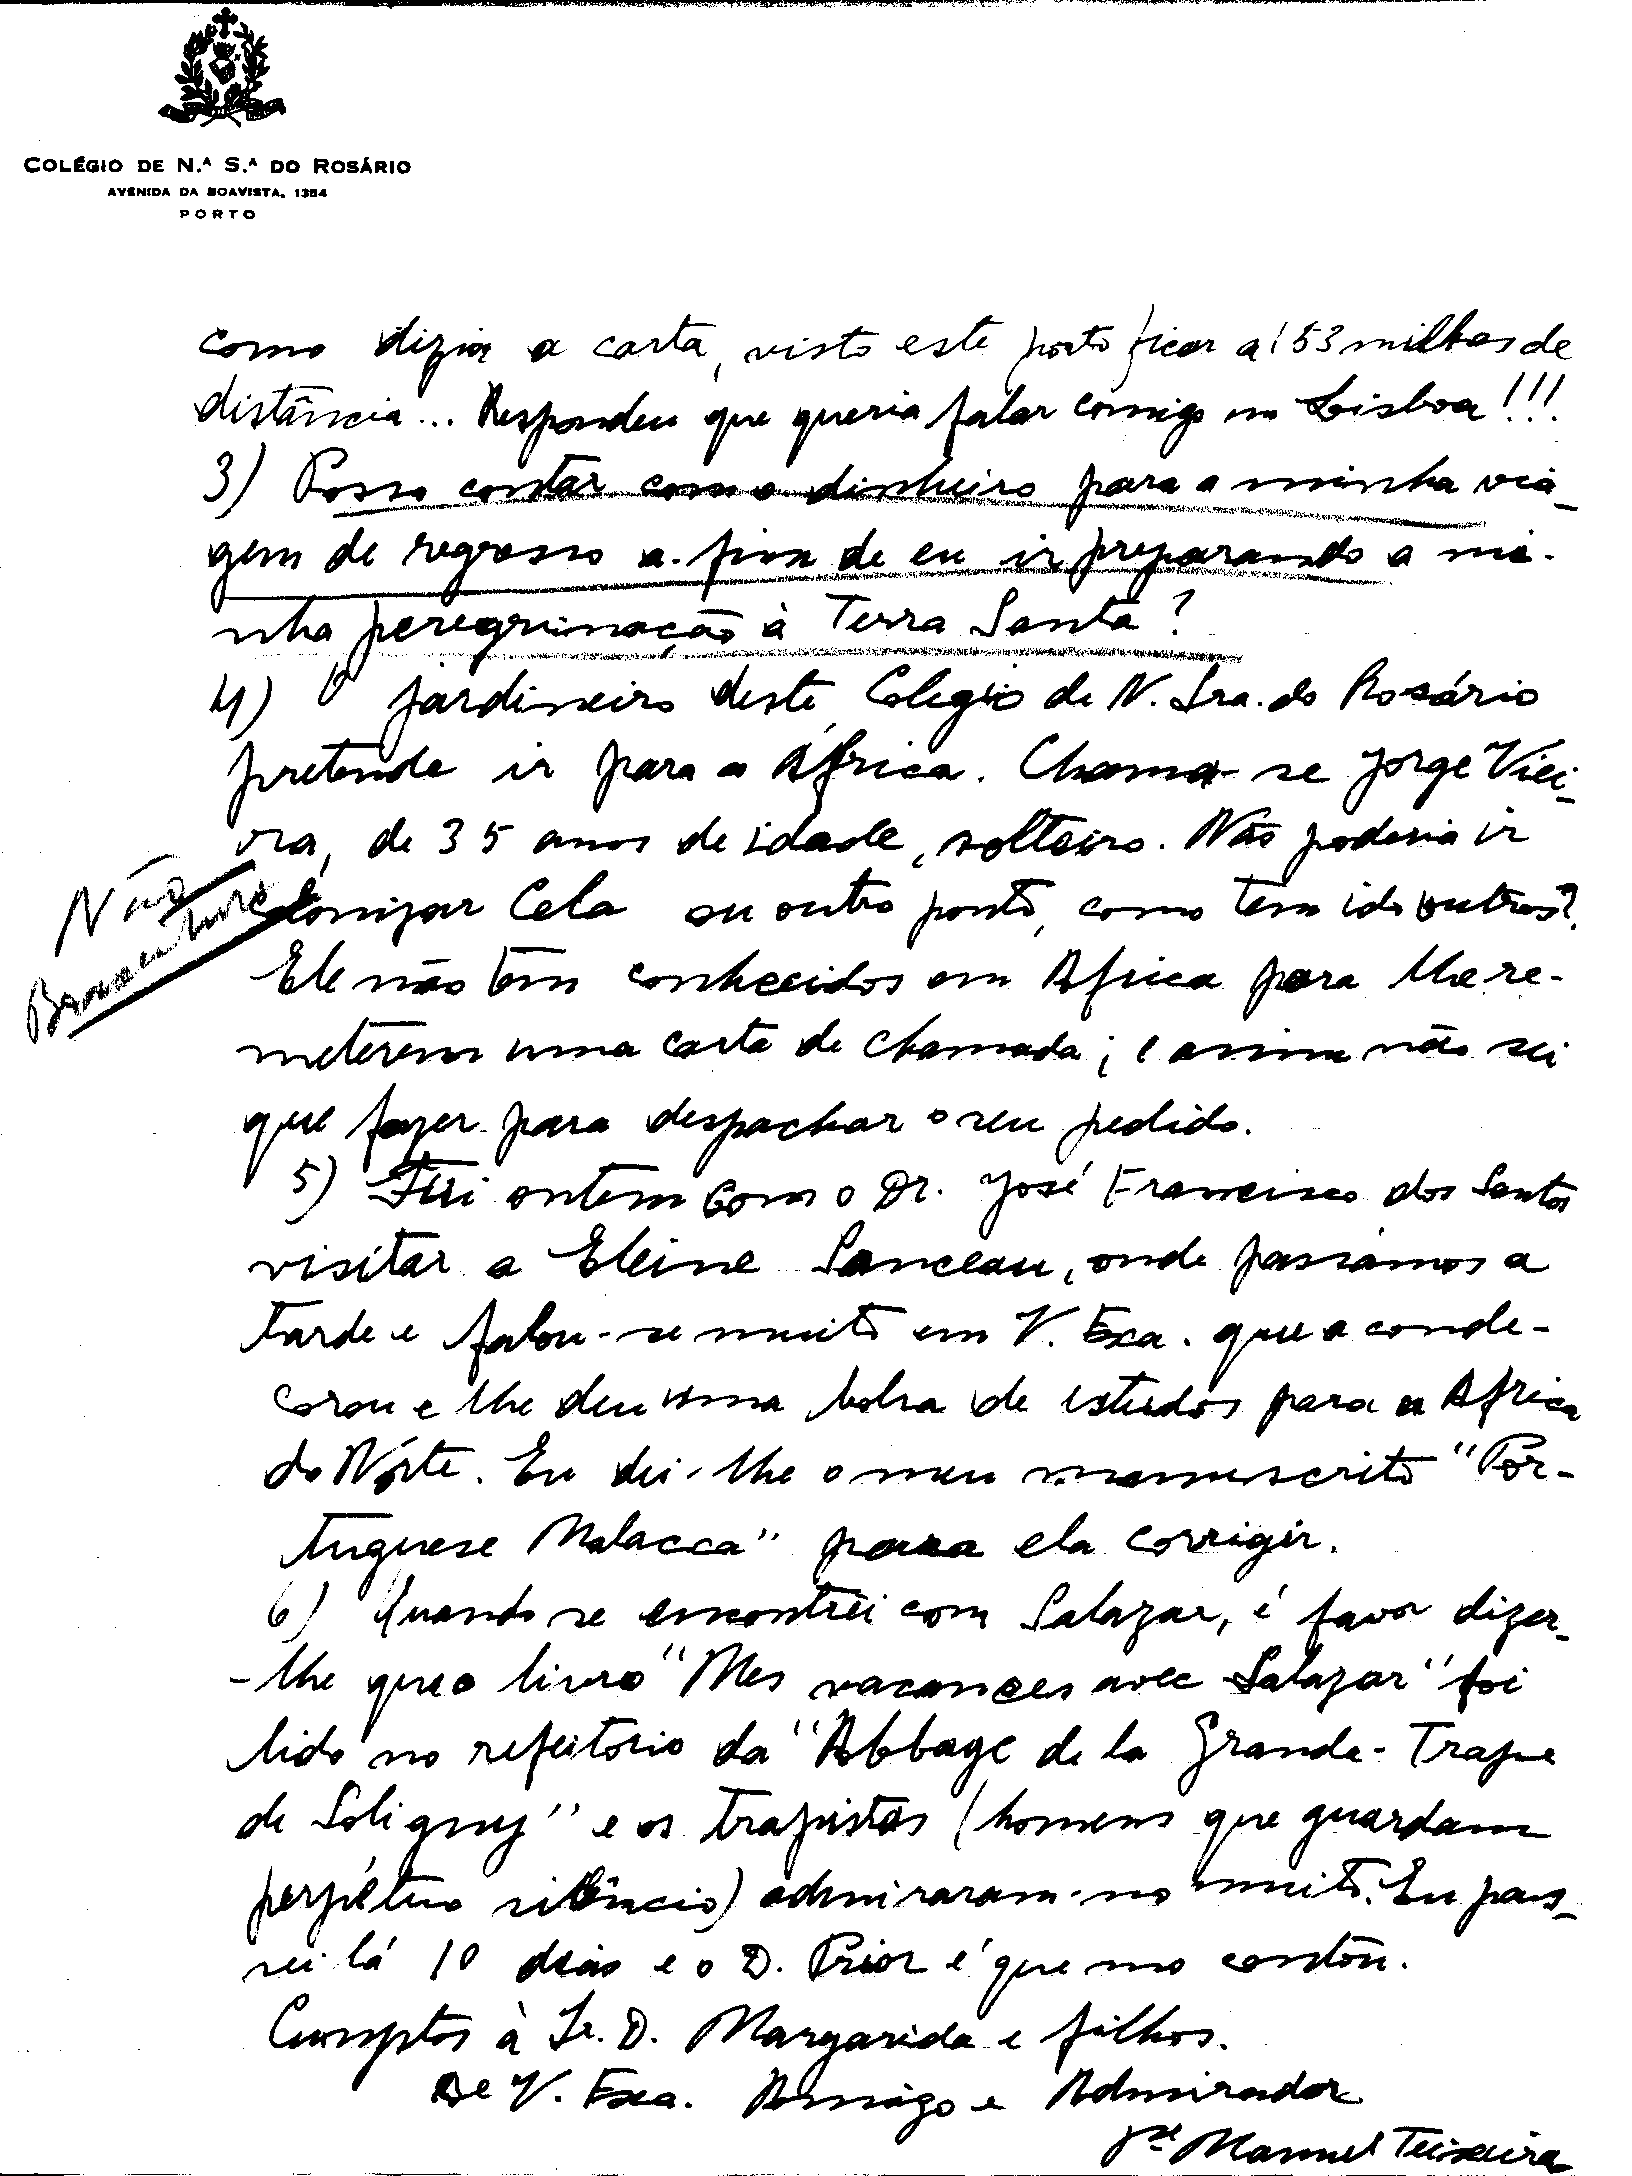 COLÉGIO DE N.ª S.ª DO ROSÁRIO
AVENIDA DA BOAVISTA, 1354
PORTO
como dizia a carta, visto este porto ficar a 153 milhas de
distância... Respondeu que queria falar comigo em Lisboa!!!
3) Posso contar com o dinheiro para a minha via-
gem de regresso a fim de eu ir preparando a mi-
nha peregrinação à Terra Santa?
4) O jardineiro deste Colegio de N. Sra. do Rosário
pretende ir para a África. Chama-se Jorge Viei-
ra, de 35 anos de idade, solteiro. Não poderia ir
colonizar Cela ou outro ponto, como tem ido outros?
Não
Ele não tem conhecidos em Africa para lhe re-
meterem uma carta de chamada; e assim não sei
que fazer para despachar o seu pedido.
5) Fui ontem com o Dr. José Francisco dos Santos
visitar a Eleine Sanceau, onde passámos a
tarde e falou-se muito em V. Exa. que a conde-
corou e lhe deu uma bolsa de estudos para a Africa
do Norte. Eu dei-lhe o meu manuscrito "Por-
tuguese Malacca" para ela corrigir.
6) Quando se encontrei com Salazar, é favor dizer-
-lhe que o livro "Mes vacances avec Salazar" foi
lido no refeitório da "Abbaye de la Grande-Trappe
de Soligny" e os trapistas (homens que guardam
perpétuo silêncio) admiraram-no muito. Eu pas-
sei lá 10 dias e o D. Prior é que mo contou.
Cumptos à Sr. D. Margarida e filhos.
De V. Exa. Amigo e Admirador
Pe. Manuel Teixeira